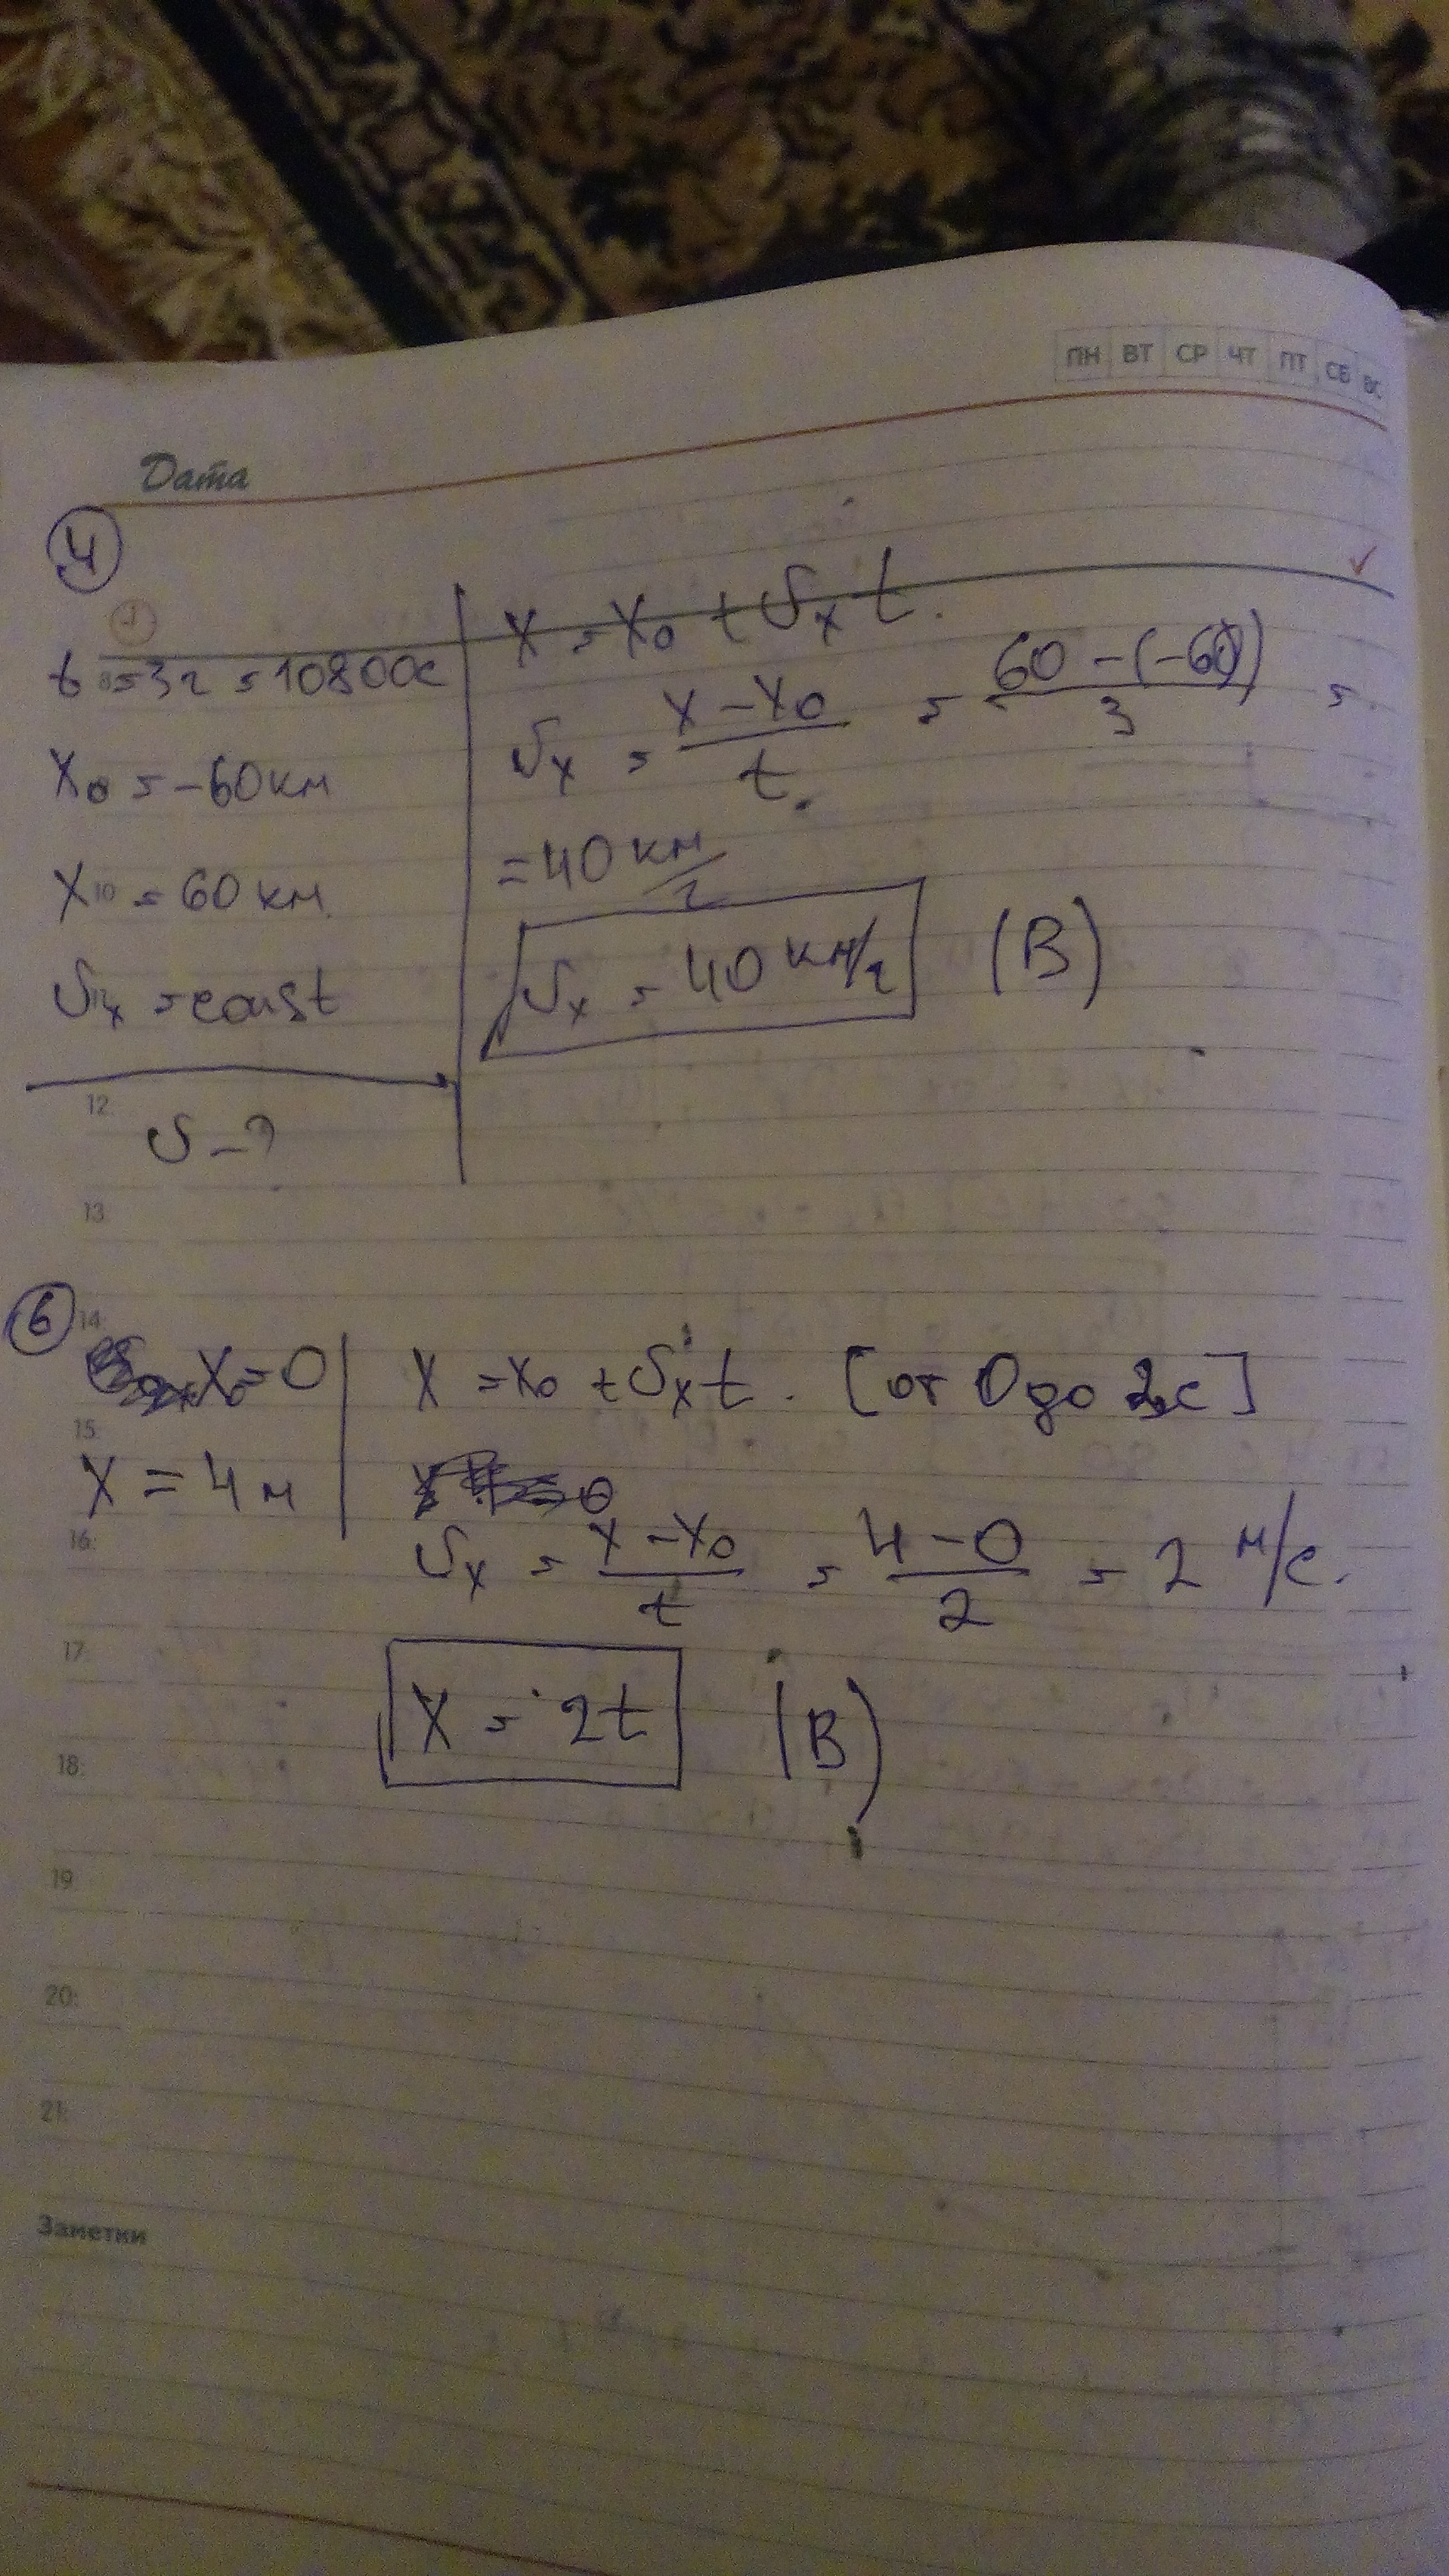 ПН ВТ СР ЧТ ПТ СБ ВС
Дата
4
t = 3ч = 10800с
x₀ = -60 км
x = 60 км
υₓ = const
υ - ?
x = x₀ + υₓ t.
υₓ = (x - x₀)/t = (60 - (-60))/3 =
= 40 км/ч
υₓ = 40 км/ч (В)
12:
13:
14:
15:
16:
17:
18:
19:
20:
21:
6
x₀ = 0
x = 4 м
x = x₀ + υₓ t. [от 0 до 2с]
υₓ = (x - x₀)/t = (4 - 0)/2 = 2 м/с.
x = 2t (В)
Заметки